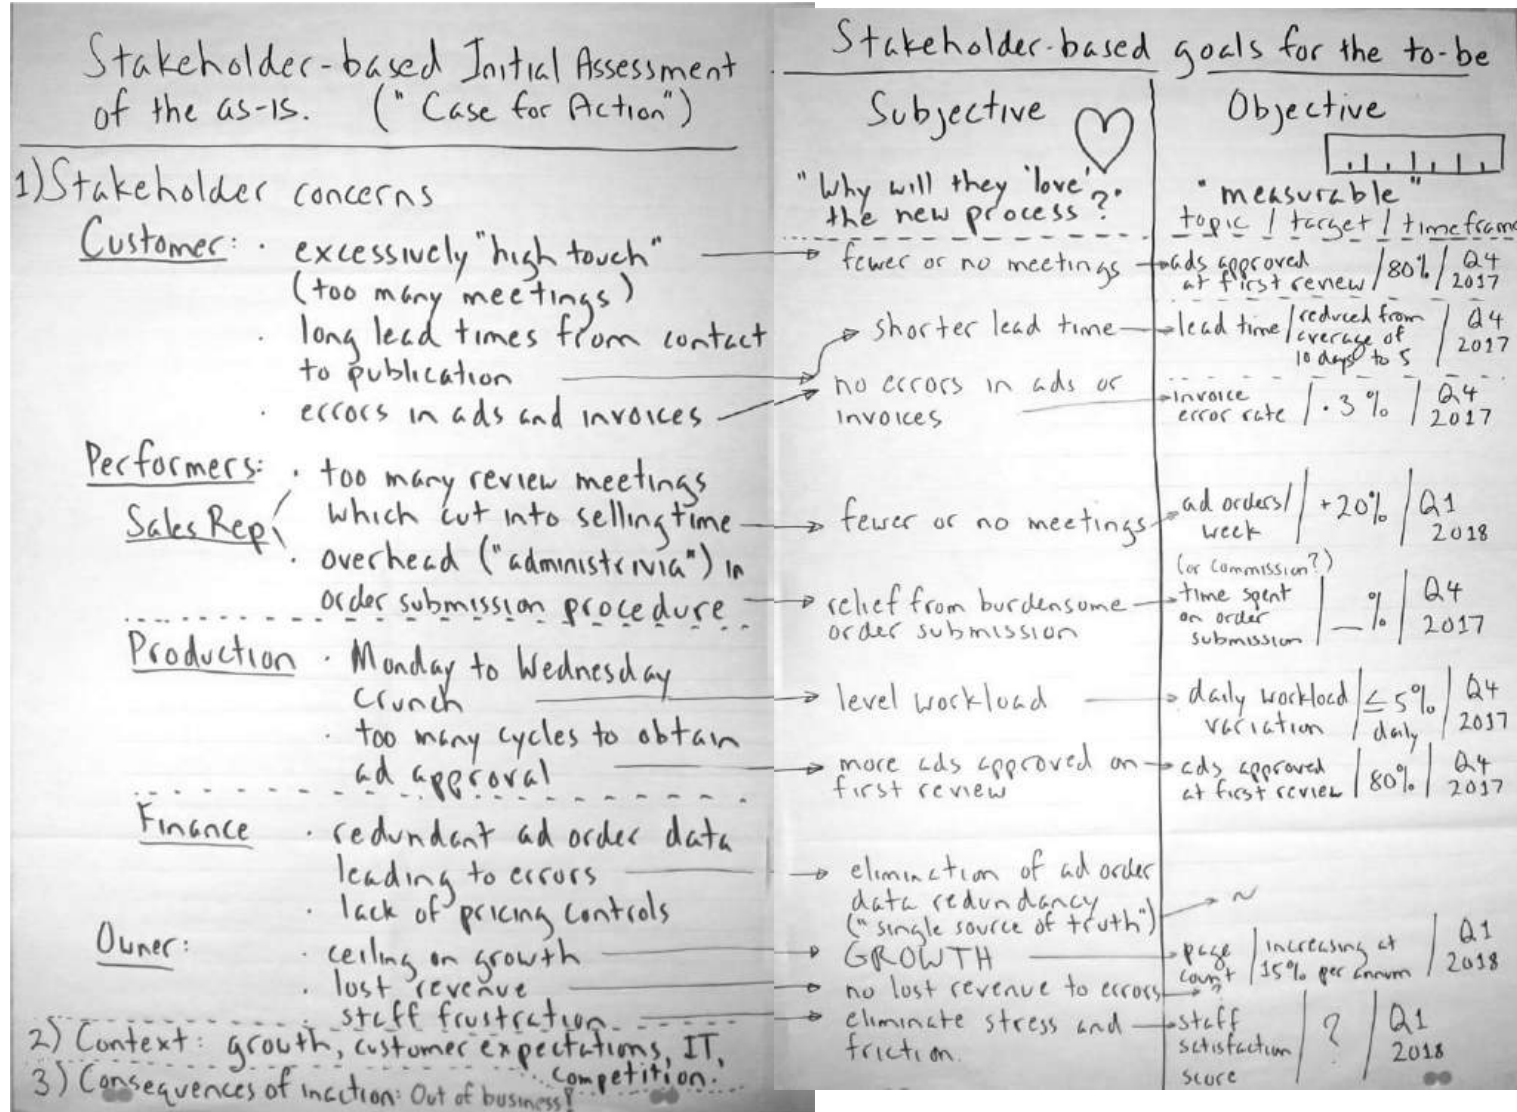 Stakeholder-based Initial Assessment
of the as-is. ("Case for Action")
1) Stakeholder concerns
Customer: · excessively "high touch"
(too many meetings)
· long lead times from contact
to publication
· errors in ads and invoices
Performers: · too many review meetings
which cut into selling time
Sales Rep
· overhead ("administrivia") in
order submission procedure
Production · Monday to Wednesday
crunch
· too many cycles to obtain
ad approval
Finance · redundant ad order data
leading to errors
· lack of pricing controls
Owner: · ceiling on growth
· lost revenue
· staff frustration
2) Context: growth, customer expectations, IT,
competition.
3) Consequences of inaction: Out of business!
Stakeholder-based goals for the to-be
Subjective
"Why will they 'love'
the new process?"
fewer or no meetings
shorter lead time
no errors in ads or
invoices
fewer or no meetings
relief from burdensome
order submission
level workload
more ads approved on
first review
elimination of ad order
data redundancy
("single source of truth")
GROWTH
no lost revenue to errors
eliminate stress and
friction.
Objective
"measurable"
topic / target / timeframe
ads approved
at first review / 80% / Q4
2017
lead time / reduced from
average of
10 days to 5 / Q4
2017
invoice
error rate / .3% / Q4
2017
ad orders/
week / +20% / Q1
2018
(or commission?)
time spent
on order
submission / _% / Q4
2017
daily workload
variation / ≤5%
daily / Q4
2017
ads approved
at first review / 80% / Q4
2017
~
page
count / increasing at
15% per annum / Q1
2018
?
staff
satisfaction
score / ? / Q1
2018